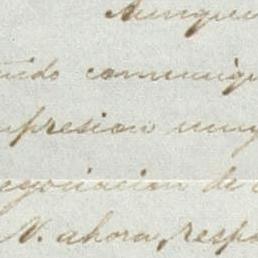 Aunque
nido comuniq
mpresion muy
egociacion de
V. ahora, resp